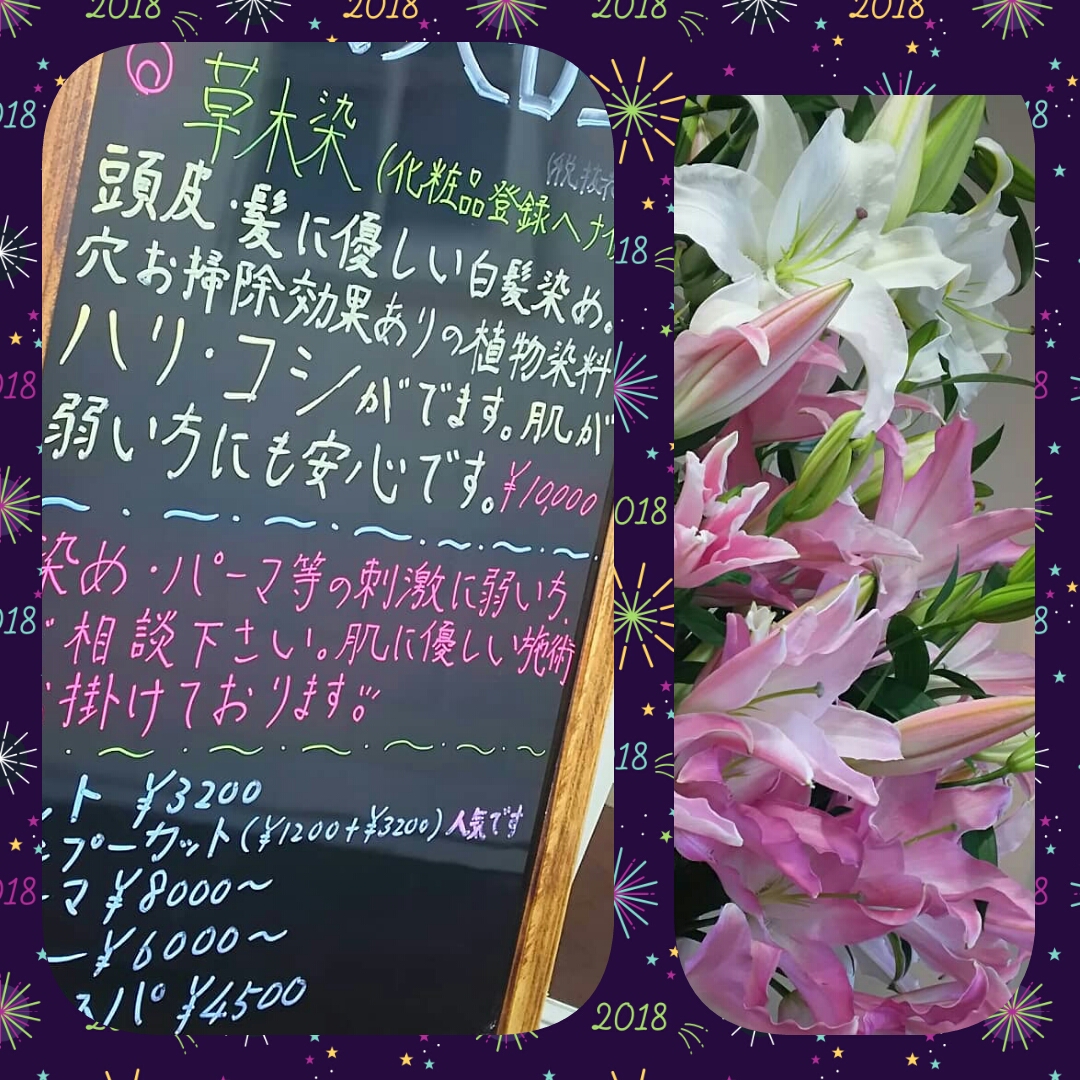 2018 2018 2018 2018
草木染 (化粧品登録ヘナ
(税抜
頭皮・髪に優しい白髪染め。
穴お掃除効果ありの植物染料
ハリ・コシがでます。肌が
弱い方にも安心です。¥10,000
染め・パーマ等の刺激に弱い方、
相談下さい。肌に優しい施術
掛けております。
ト ¥3200
プーカット(¥1200+¥3200)人気です
ーマ ¥8000〜
ー¥6000〜
スパ ¥4500
2018